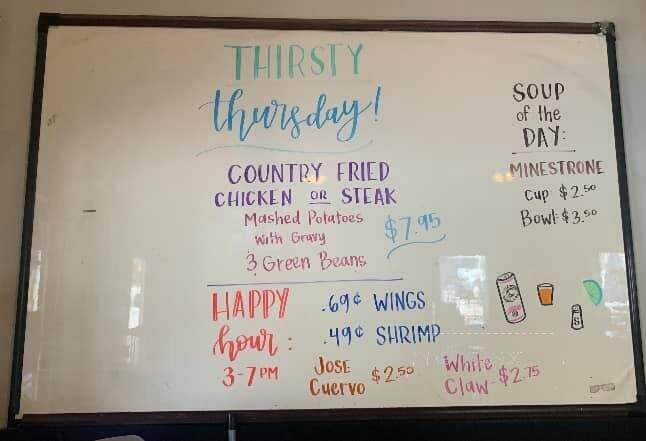 THIRSTY
thursday!
COUNTRY FRIED
CHICKEN OR STEAK
Mashed Potatoes
with Gravy
3 Green Beans
$7.95
HAPPY
hour:
3-7 PM
.69¢ WINGS
.49¢ SHRIMP
JOSE
Cuervo $2.50
White
Claw- $2.75
SOUP
of the
DAY:
MINESTRONE
Cup $2.50
Bowl: $3.50
S